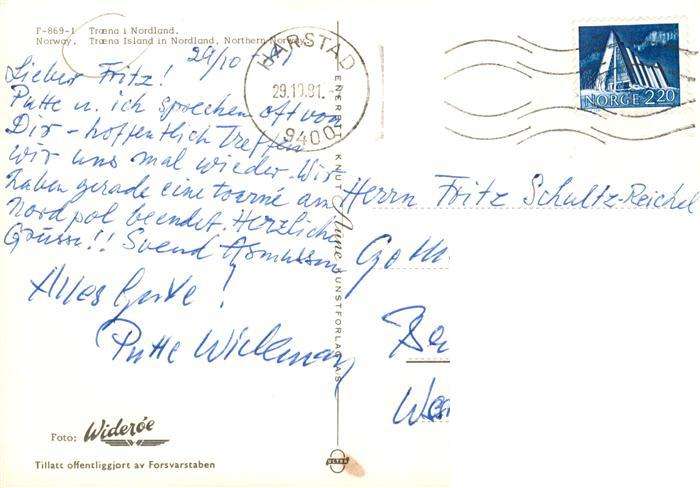 F-869-1 Træna i Nordland.
Norway. Træna Island in Nordland, Northern Norway.
29/10-81
Lieber Fritz!
Putte u. ich sprechen oft von
Dir - hoffentlich treffen
wir uns mal wieder. Wir
haben gerade eine tourné am
Nordpol beendet. Herzliche
Grüsse!! Svend Asmussen
Alles Gute!
Putte Wickman
Foto: Widerøe
Tillatt offentliggjort av Forsvarstaben
ENERETT: KNUT Aune KUNSTFORLAG A/S
ULTRA
HARSTAD
29.10.81.-
9400
NORGE 220
Herrn Fritz Schultz-Reichel